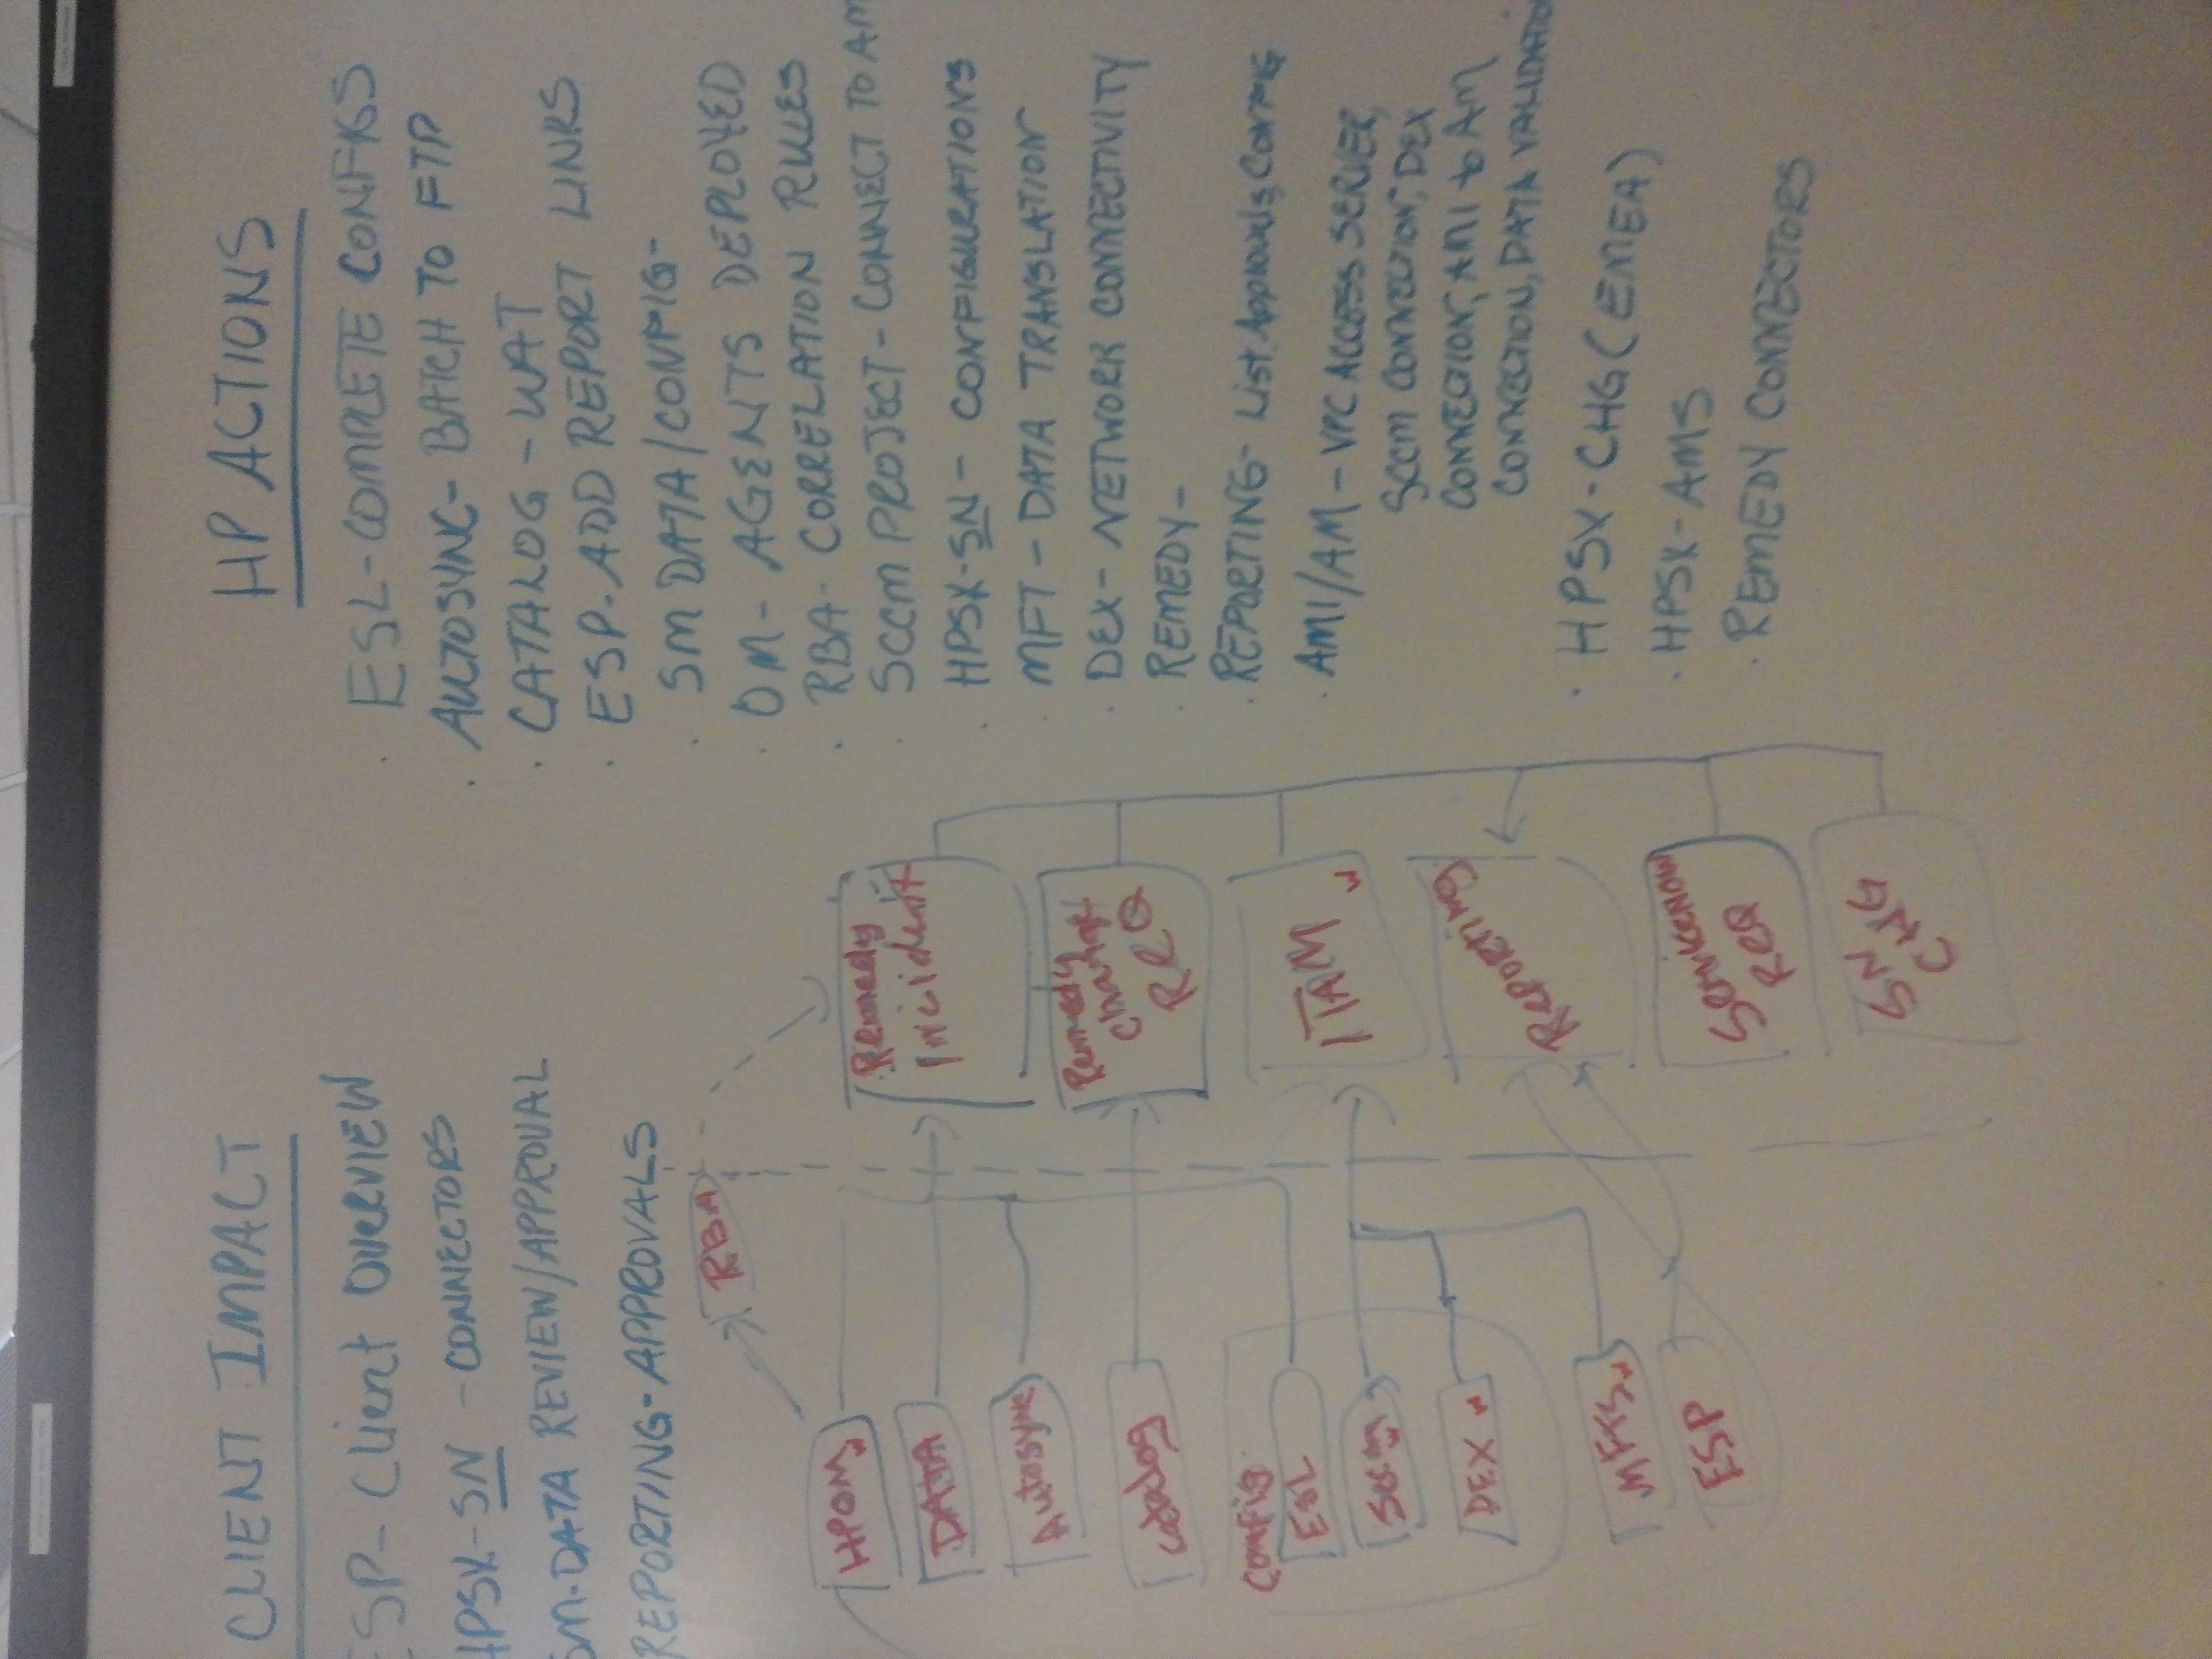 CLIENT IMPACT
ESP- Client OVERVIEW
HPSX-SN - CONNECTORS
SM-DATA REVIEW/APPROVAL
REPORTING- APPROVALS
HP ACTIONS
· ESL-COMPLETE CONFIGS
· AUTOSYNC- BATCH TO FTP
· CATALOG - WAT
· ESP-ADD REPORT LINKS
· SM DATA/CONFIG-
· OM- AGENTS DEPLOYED
· RBA- CORRELATION RULES
· SCCM PROJECT- CONNECT TO AM
· HPSX-SN- CONFIGURATIONS
· MFT- DATA TRANSLATION
· DEX- NETWORK CONNECTIVITY
· REMEDY-
· REPORTING- List, Approvals, Config
· AMI/AM- VPC ACCESS SERVER,
SCCM CONNECTION, DEX
CONNECTION, AMI to AM
CONNECTION, DATA VALIDATION
· HPSX-CHG (EMEA)
· HPSX-AMS
· REMEDY CONNECTORS
RBA
HPOM
DATA
AUTOSYNC
catalog
config
ESL
Sccm
DEX
ESP
Remedy
Incident
Remedy
Change
REQ
ITAM
REPORTING
ServiceNOW
REQ
SN
CHG